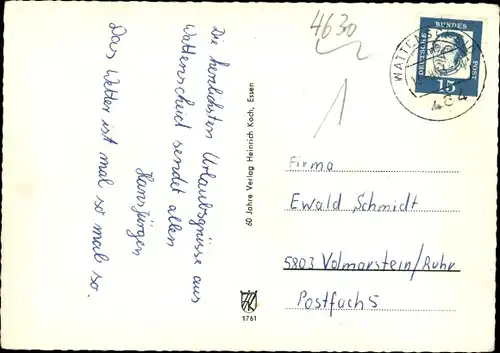 Die herzlichsten Urlaubsgrüsse aus
Wattenscheid sendet allen
Hansjürgen
Das Wetter ist mal so mal so.
60 Jahre Verlag Heinrich Koch, Essen
1761
4630
1
DEUTSCHE
BUNDES
POST
15
WATTEN
Firma
Ewald Schmidt
5803 Volmarstein/Ruhr
Postfach 5